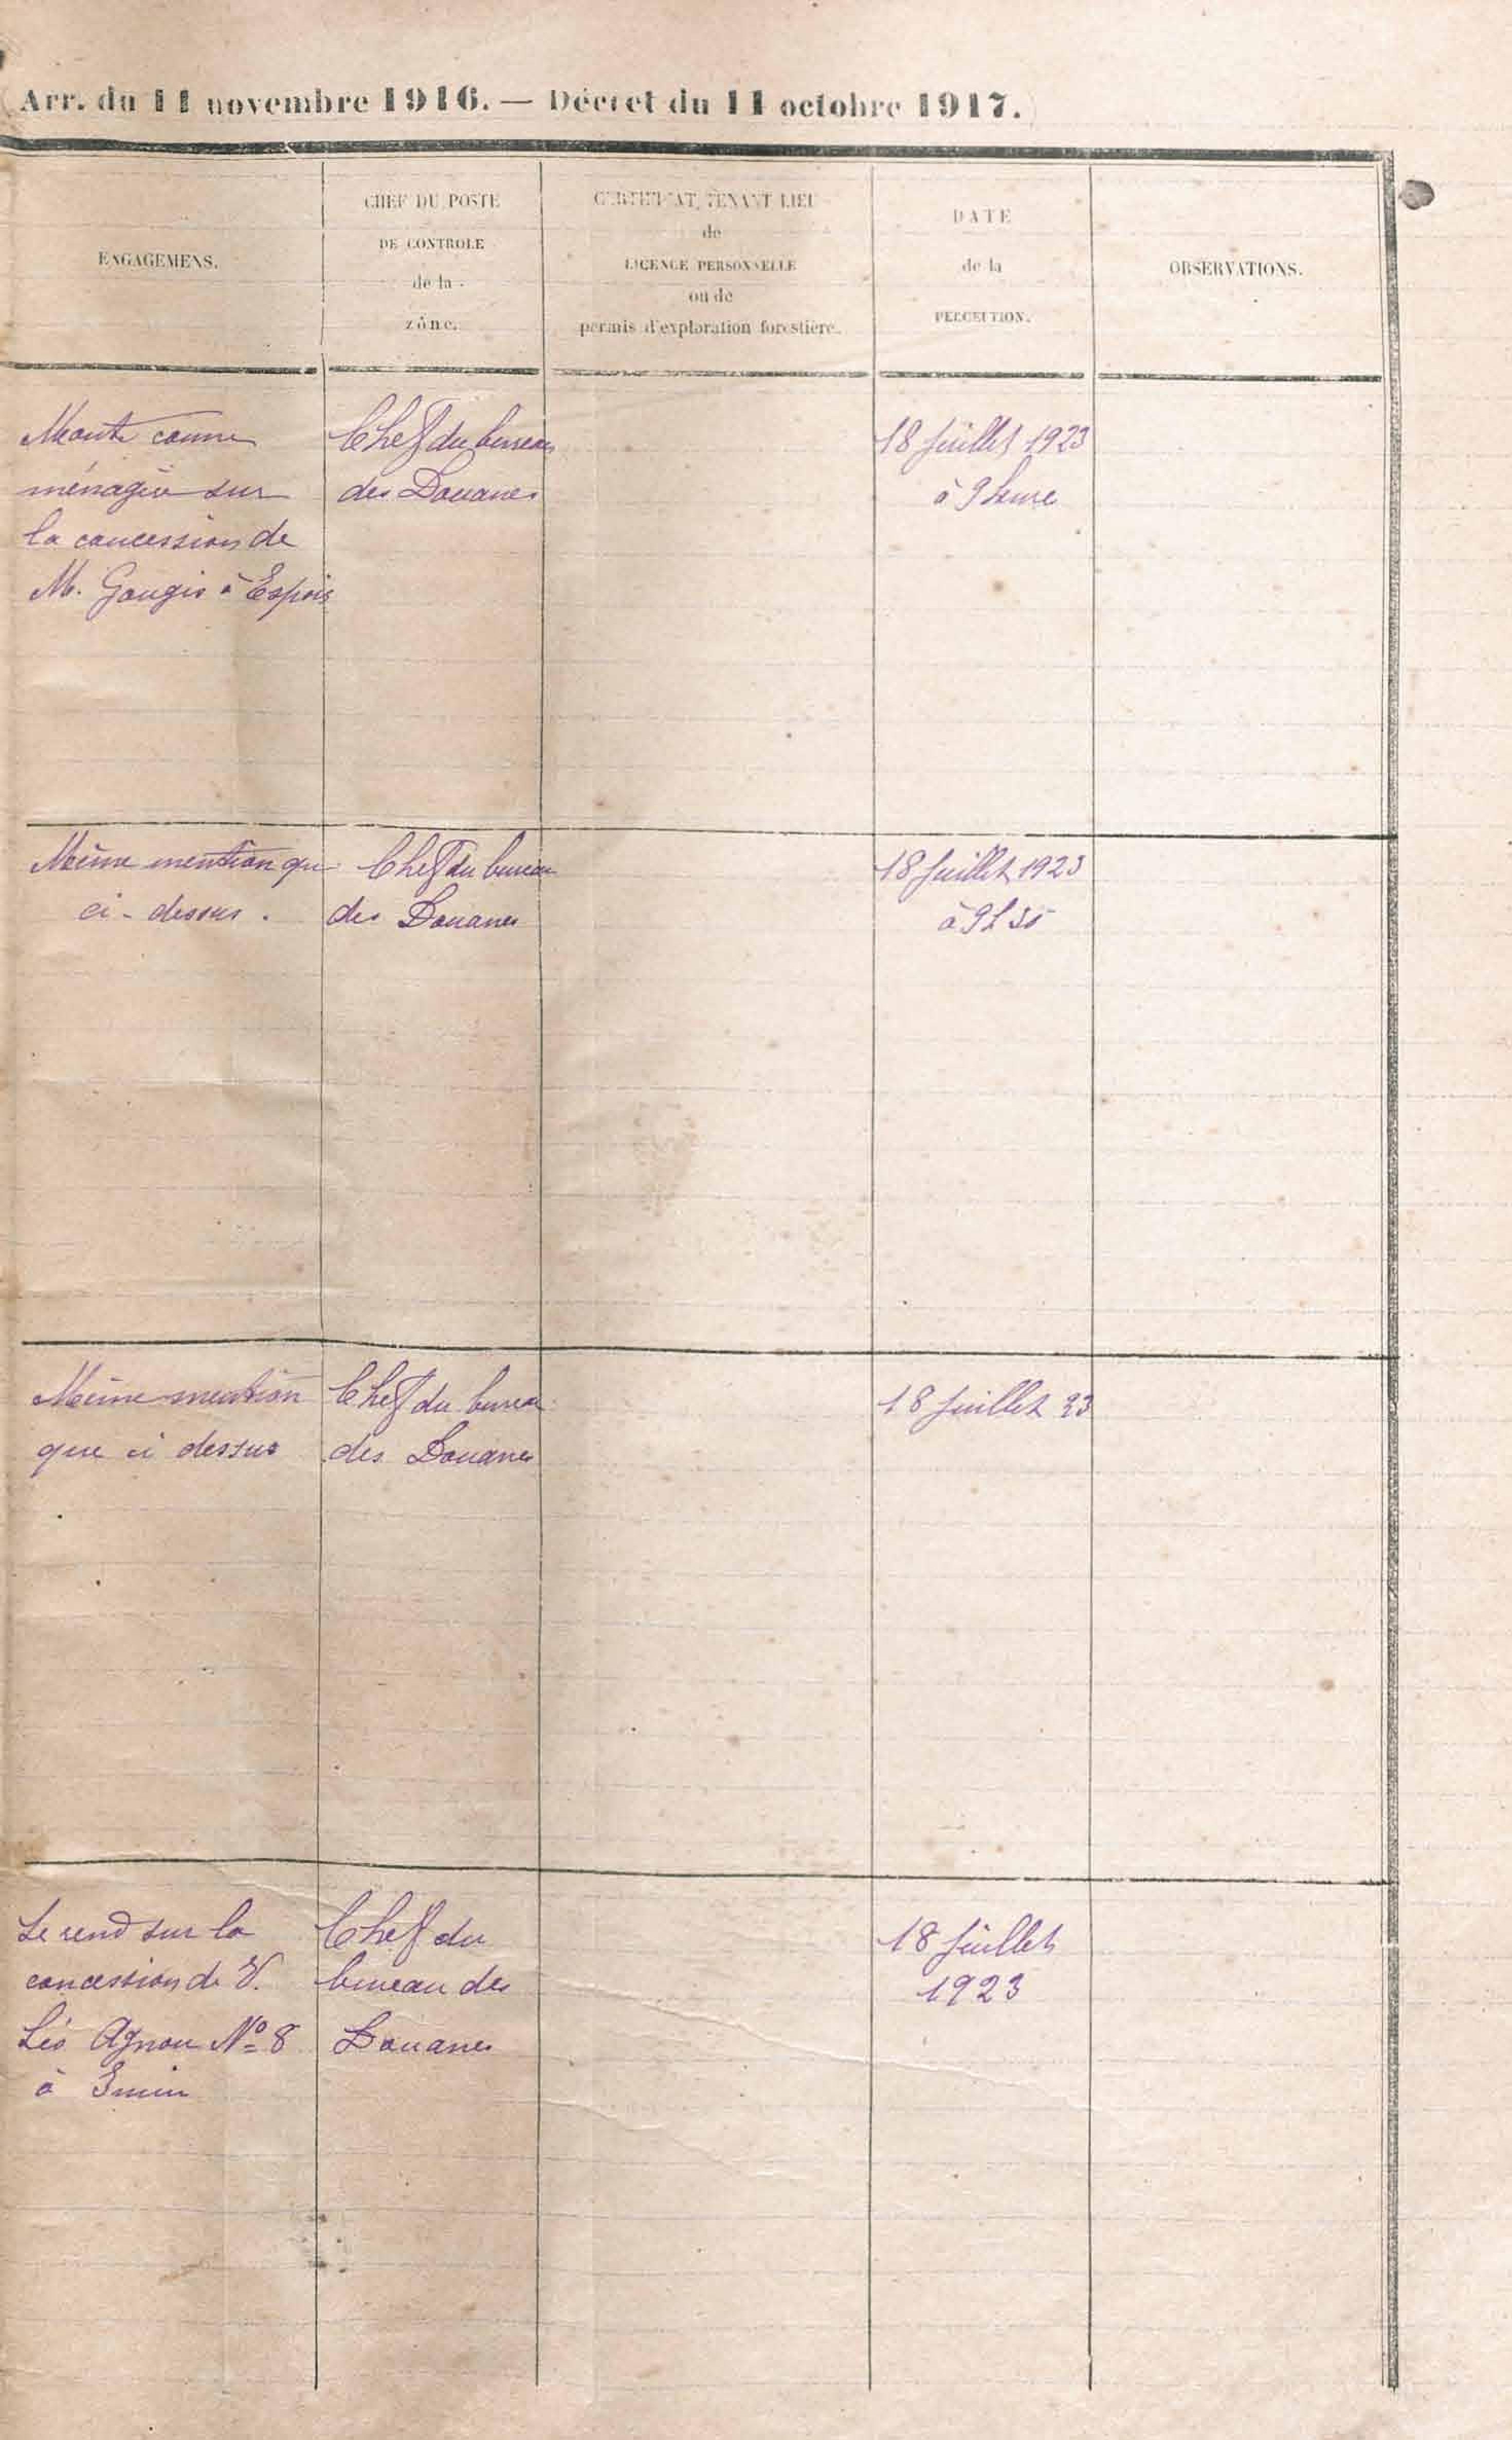 Arr. du 11 novembre 1916. — Décret du 11 octobre 1917.
ENGAGEMENS.
CHEF DU POSTE
DE CONTROLE
de la
zône.
CERTIFICAT TENANT LIEU
de
LICENCE PERSONNELLE
ou de
permis d'exploration forestière.
DATE
de la
PERCEPTION.
OBSERVATIONS.
Monte comme
ménagère sur
la concession de
M. Gougis à Espoir
Chef du bureau
des Douanes
18 Juillet 1923
à 9 heure
Même mention que
ci-dessus.
Chef du bureau
des Douanes
18 Juillet 1923
à 9h 30
Même mention
que ci dessus
Chef du bureau
des Douanes
18 Juillet 23
Se rend sur la
concession de V.
Léo Agnou Nº 8
à
Chef du
bureau des
Douanes
18 Juillet
1923